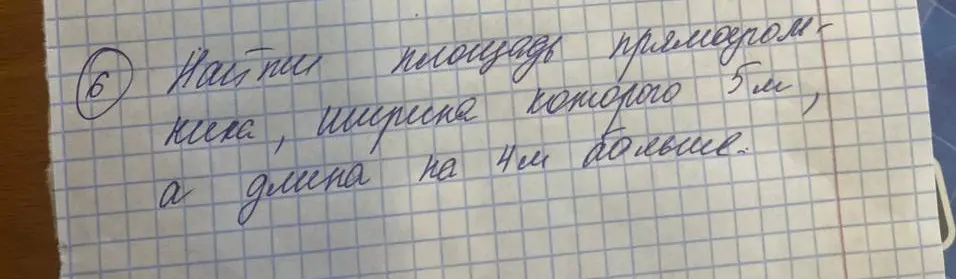 6 Найти площадь прямоугом-
ника, ширина которого 5 м,
а длина на 4 м больше.